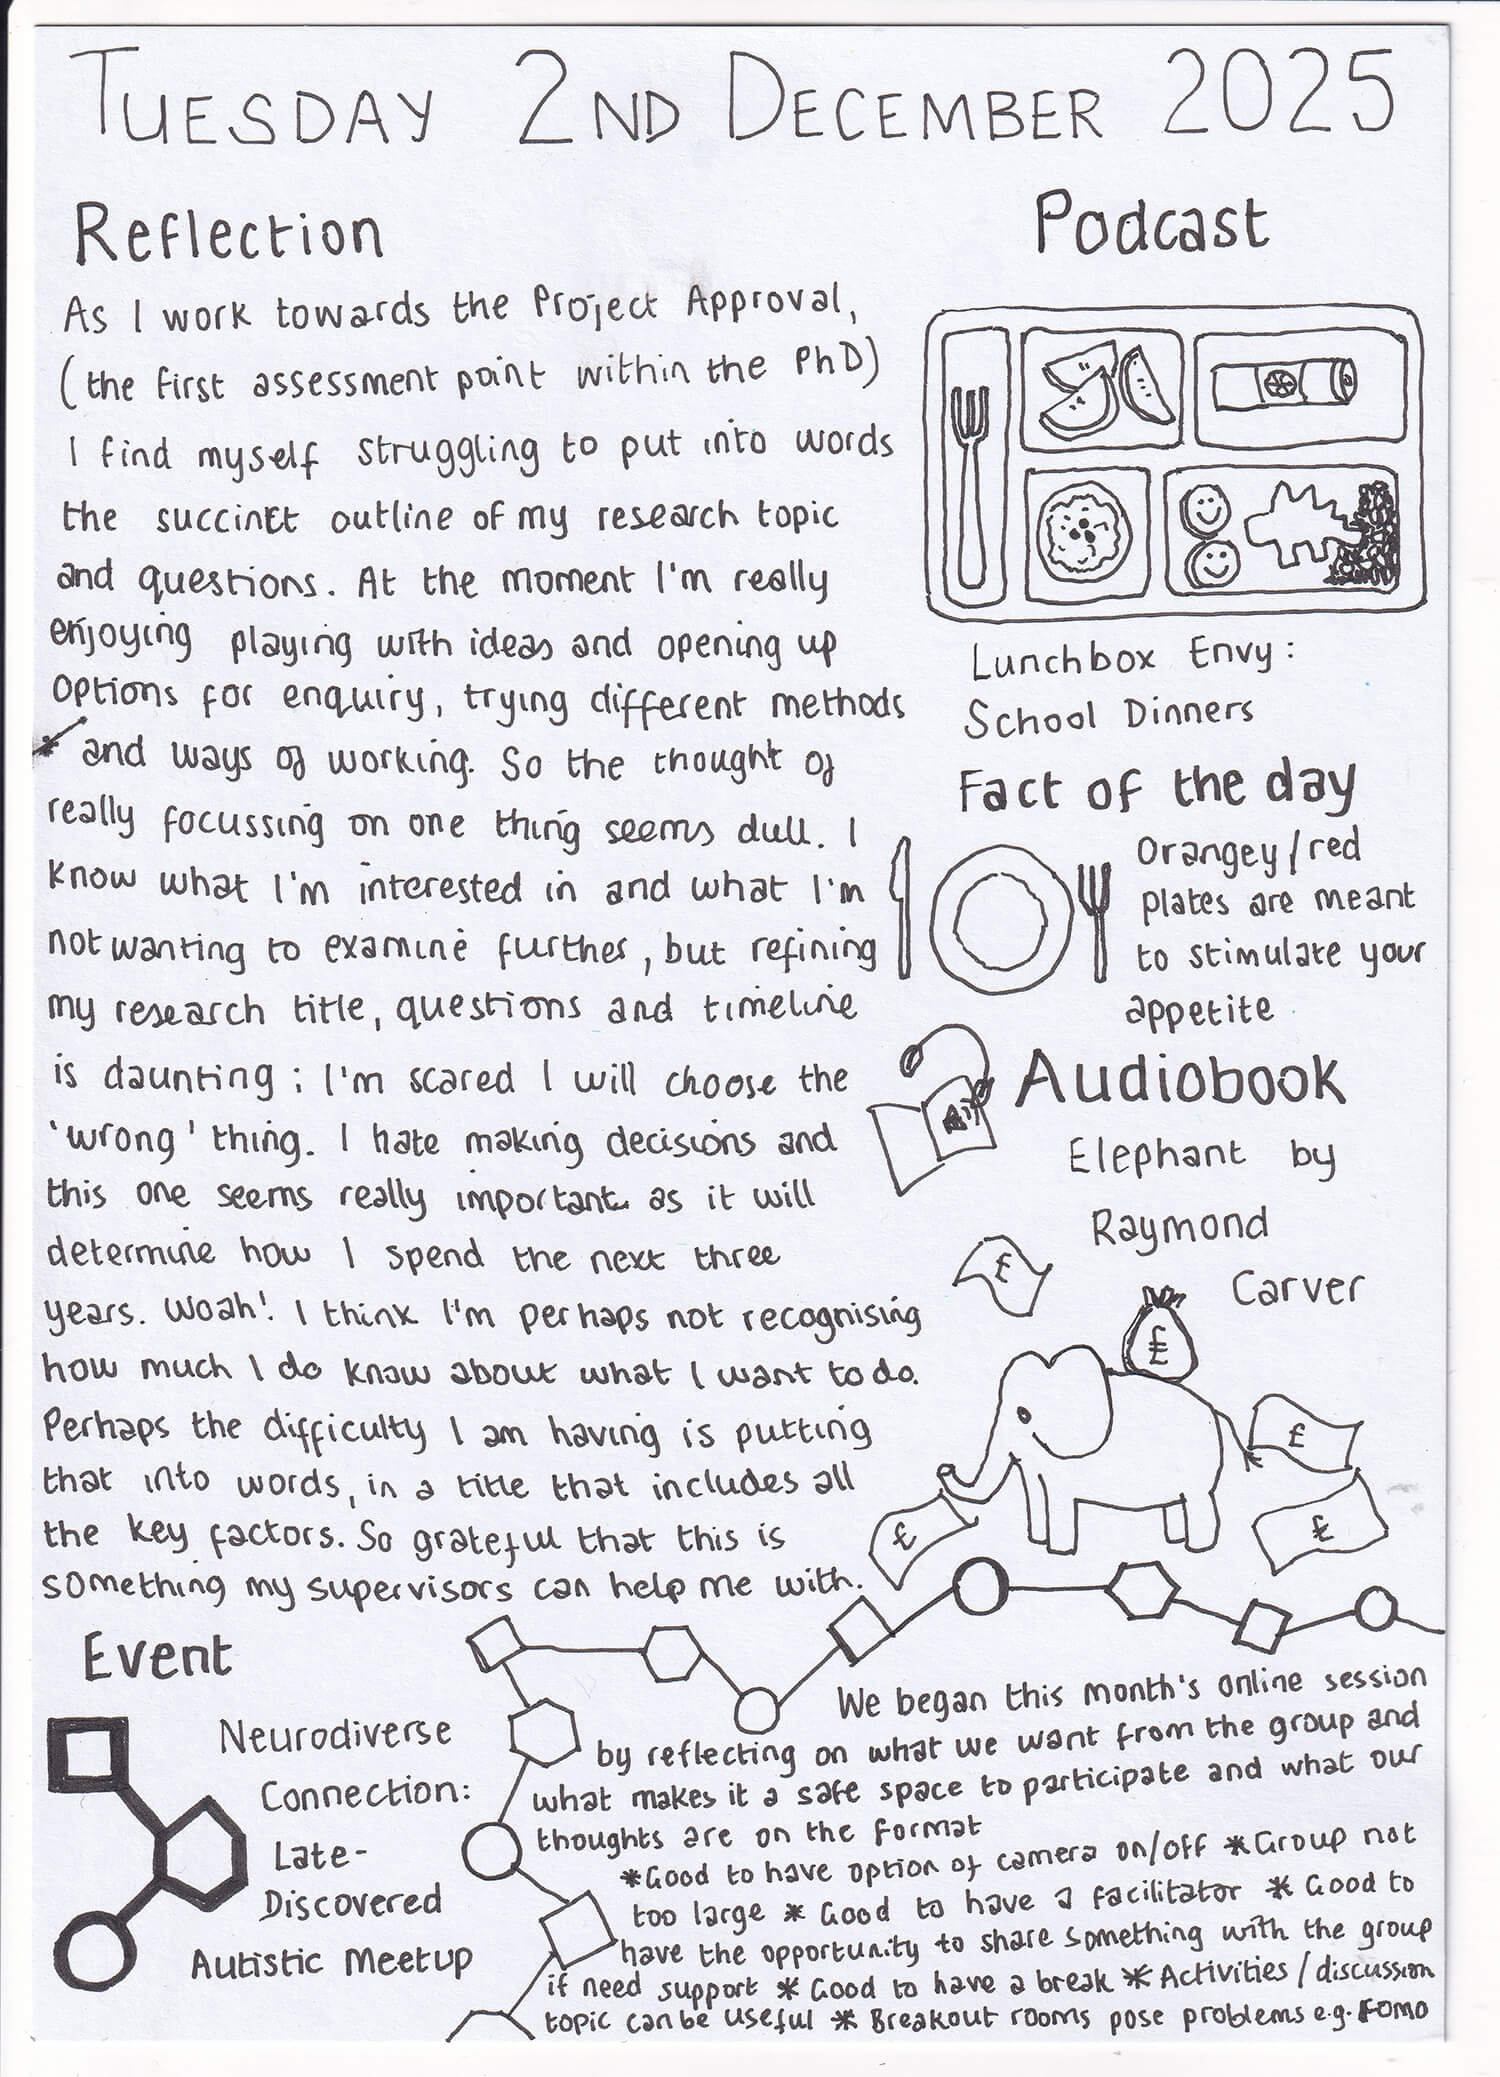 TUESDAY 2ND DECEMBER 2025
Reflection
As I work towards the Project Approval,
(the first assessment point within the PhD)
I find myself struggling to put into words
the succinct outline of my research topic
and questions. At the moment I'm really
enjoying playing with ideas and opening up
options for enquiry, trying different methods
* and ways of working. So the thought of
really focussing on one thing seems dull. I
know what I'm interested in and what I'm
not wanting to examine further, but refining
my research title, questions and timeline
is daunting; I'm scared I will choose the
'wrong' thing. I hate making decisions and
this one seems really important as it will
determine how I spend the next three
years. Woah! I think I'm perhaps not recognising
how much I do know about what I want to do.
Perhaps the difficulty I am having is putting
that into words, in a title that includes all
the key factors. So grateful that this is
something my supervisors can help me with.
Podcast
Lunchbox Envy:
School Dinners
Fact of the day
Orangey/red
plates are meant
to stimulate your
appetite
Audiobook
Elephant by
Raymond
Carver
£
£
£
£
£
Event
Neurodiverse
Connection:
Late-
Discovered
Autistic Meetup
We began this month's online session
by reflecting on what we want from the group and
what makes it a safe space to participate and what our
thoughts are on the format
*Good to have option of camera on/off *Group not
too large * Good to have a facilitator * Good to
have the opportunity to share something with the group
if need support * Good to have a break * Activities/discussion
topic can be useful * Breakout rooms pose problems e.g. FOMO